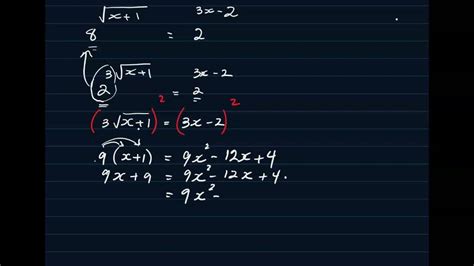 8^√(x+1) = 2^(3x-2)
2^(3√(x+1)) = 2^(3x-2)
(3√(x+1))^2 = (3x-2)^2
9(x+1) = 9x^2 - 12x + 4
9x + 9 = 9x^2 - 12x + 4.
= 9x^2 -